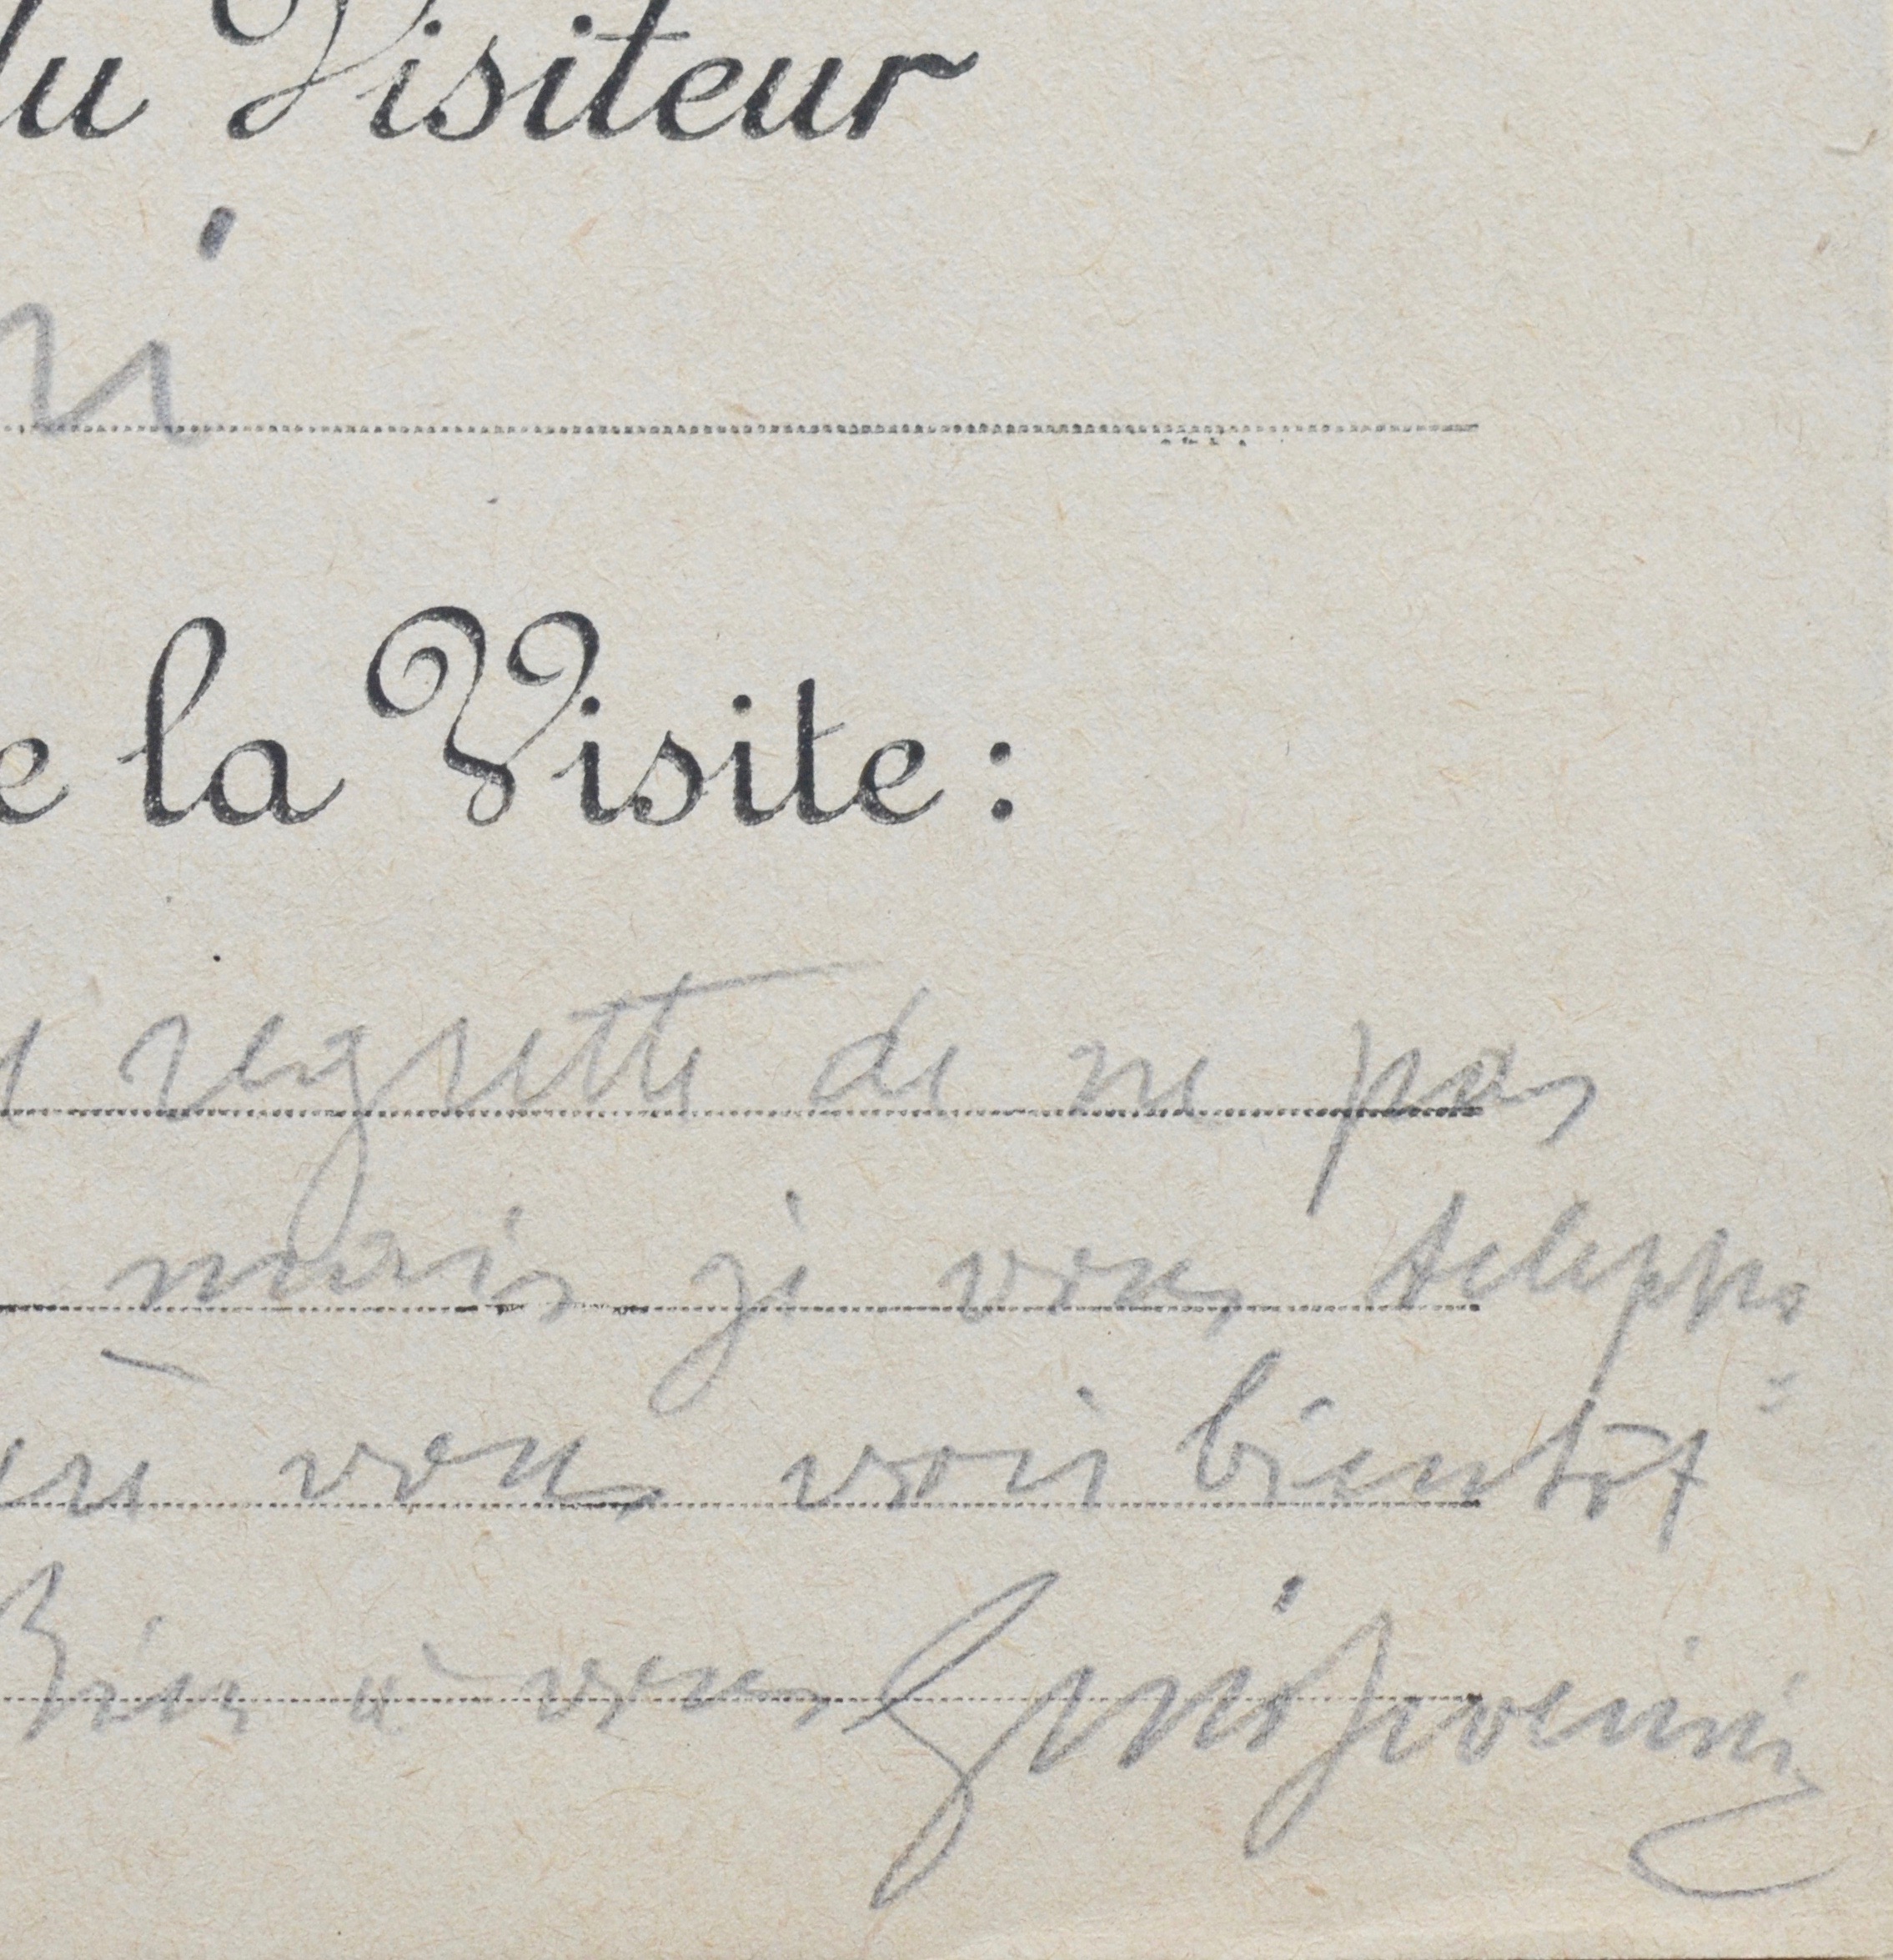 du Visiteur
ni
e la Visite :
regrette de ne pas
mais je vous telepho
vous voir bientôt
Bien à vous GinoSeverini